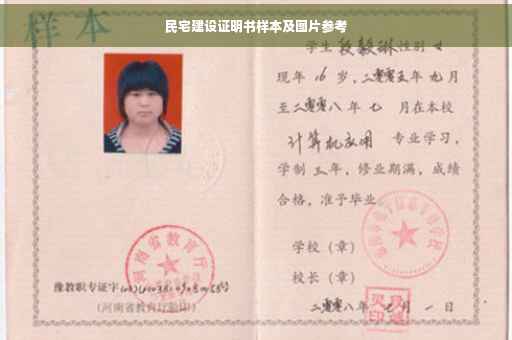 民宅建设证明书样本及图片参考
样本
学生段毅琳性别女
现年16岁,二零零五年九月
至二零零八年七月在本校
计算机应用 专业学习,
学制三年,修业期满,成绩
合格,准予毕业。
学校(章)
校长(章)
二零零八年七月一日
河南省教育厅
豫教职专证字
(河南省教育厅验印)